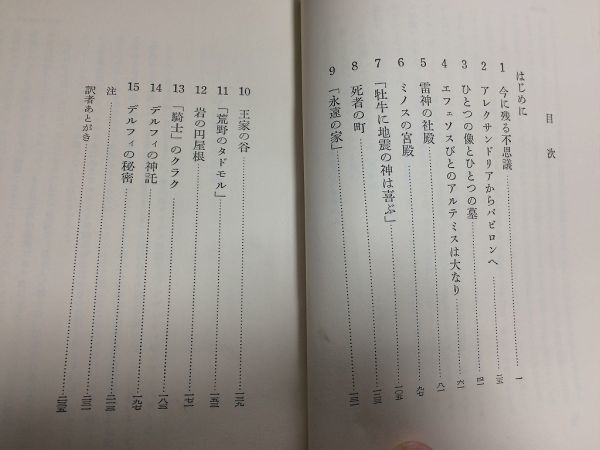 目次
はじめに……一
1 今に残る不思議
2 アレクサンドリアからバビロンへ……二五
3 ひとつの像とひとつの墓……四一
4 エフェソスびとのアルテミスは大なり……六一
5 雷神の社殿……八一
6 ミノスの宮殿……九七
7 「牡牛に地震の神は喜ぶ」……一〇五
8 死者の町……一二三
9 「永遠の家」……一三一
10 王家の谷……一三九
11 「荒野のタドモル」……一五三
12 岩の円屋根……一七一
13 「騎士」のクラク……一八三
14 デルフィの神託……一九七
15 デルフィの秘密
注
訳者あとがき……二三五